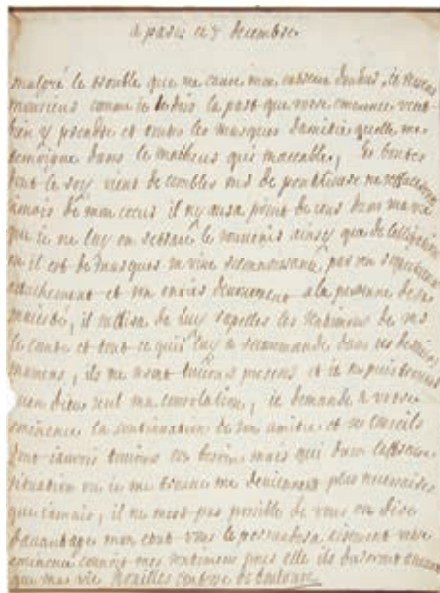 a paris ce 7 decembre
malgré le trouble que me cause mon extreme douleur, ie ressens
monsieur comme ie le dois la part que vostre eminence veut
bien y prendre et toutes les marques damitié quelle me
temoigne dans le malheur qui maccable, les bontes
dont le roy vient de combler m. de penthieuvre ne seffaceront
iamais de mon coeur il ny aura point de iour dans ma vie
que ie ne luy en retrace le souvenir ainsy que de lobligation
ou il est de marquer sa vive reconnoissance par son
attachement et son entier devouement a la personne de sa
maiesté, il suffira de luy rapeller les sentimens de
le comte et tout ce quil luy a recommandé dans ses derniers
momens, ils me sont touiours presens et ie ne puis trouver
quen dieu seul ma consolation, ie demande a vostre
eminence la continuation de son amitié et ses conseils
dont iaurois touiours eu besoin mais qui dans laffreuse
situation ou ie me trouve me deviennent plus necessaires
que iamais, il ne mest pas possible de vous en dire
davantage mon coeur vous le persuadera aisement vostre
eminence connoit mes sentimens pour elle ils dureront autant
que ma vie Noailles contesse de toulouse